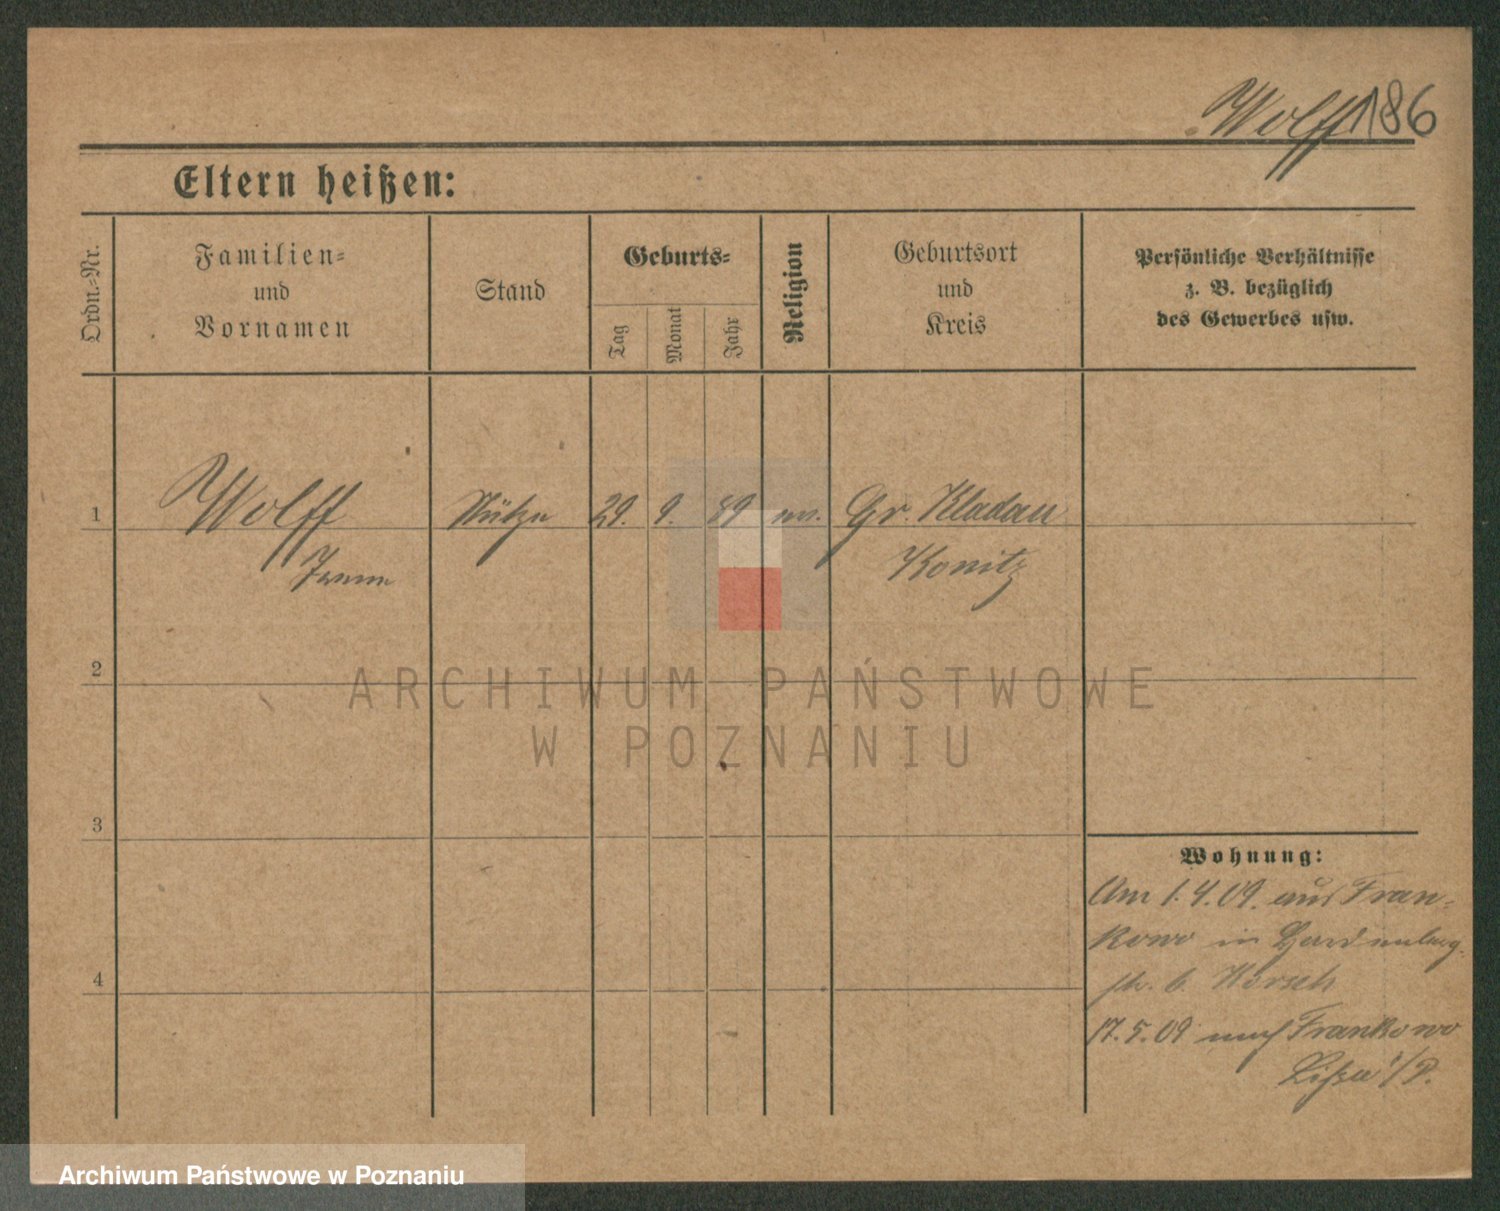 Wolff 186
Eltern heißen:
Ordn.-Nr.
Familien-
und
Vornamen
Stand
Geburts-
Tag
Monat
Jahr
Religion
Geburtsort
und
Kreis
Persönliche Verhältnisse
z. B. bezüglich
des Gewerbes usw.
1
Wolff
Stütze
29. 9. 89
ev.
Gr. Kladau
Konitz
2
ARCHIWUM PAŃSTWOWE
W POZNANIU
3
Wohnung:
Am 1.4.09. aus Fran-
kowo in
b. Horsch
4
17.5.09 nach Frankowo
Lissa i/P.
Archiwum Państwowe w Poznaniu